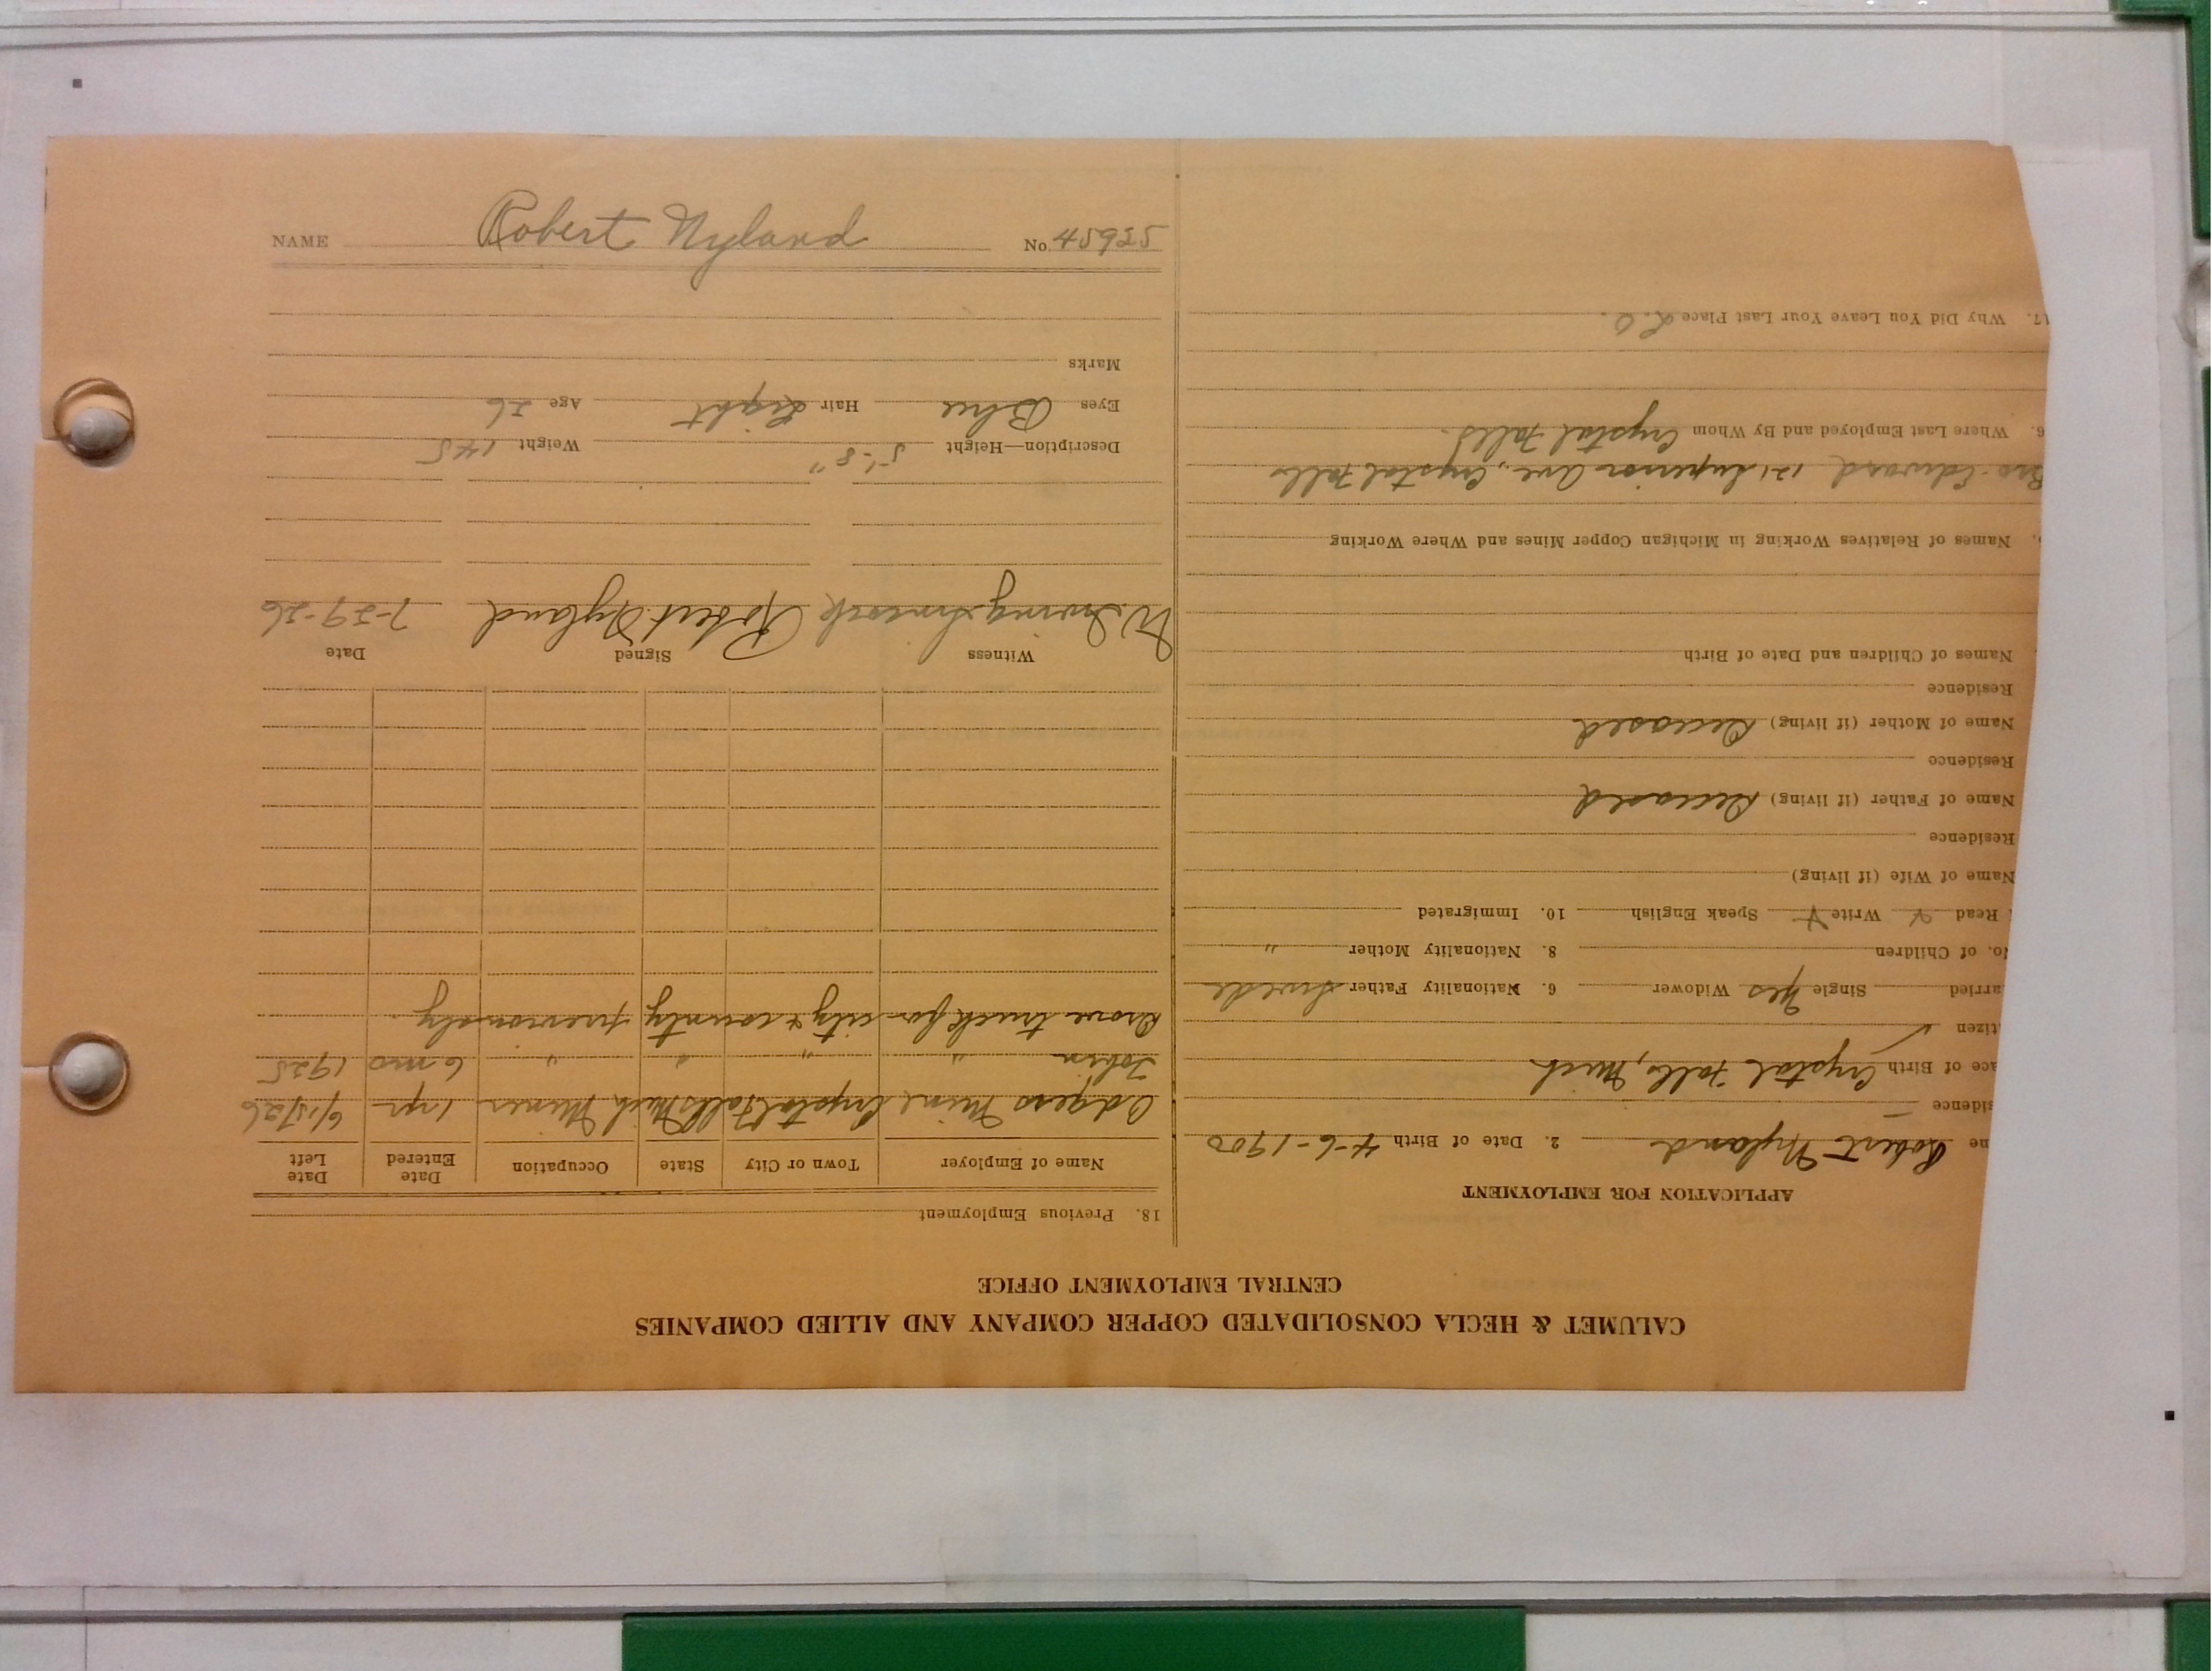 CALUMET & HECLA CONSOLIDATED COPPER COMPANY AND ALLIED COMPANIES
CENTRAL EMPLOYMENT OFFICE
APPLICATION FOR EMPLOYMENT
ne Robert Nyland 2. Date of Birth 4-6-1900
sidence —
ace of Birth Crystal Falls, Mich
tizen ✓
arried Single Yes Widower 6. Nationality Father Swede
No. of Children 8. Nationality Mother "
Read Write Speak English 10. Immigrated
Name of Wife (if living)
Residence
Name of Father (if living) Deceased
Residence
Name of Mother (if living) Deceased
Residence
Names of Children and Date of Birth
Names of Relatives Working in Michigan Copper Mines and Where Working
Bro. Edward 121 Superior Ave., Crystal Falls
6. Where Last Employed and By Whom Crystal Falls.
17. Why Did You Leave Your Last Place L.O.
18. Previous Employment
Name of Employer Town or City State Occupation Date Entered Date Left
Odgers Mine Crystal Falls Mich Miner 1 yr 6/15/26
Tobin " " " " 6 mo 1925
Drove truck for city & county previously.
Witness Signed Date
W. Irving Robert Nyland 7-29-26
Description—Height 5'-8" Weight 145
Eyes Blue Hair Light Age 26
Marks
NAME Robert Nyland No. 45925